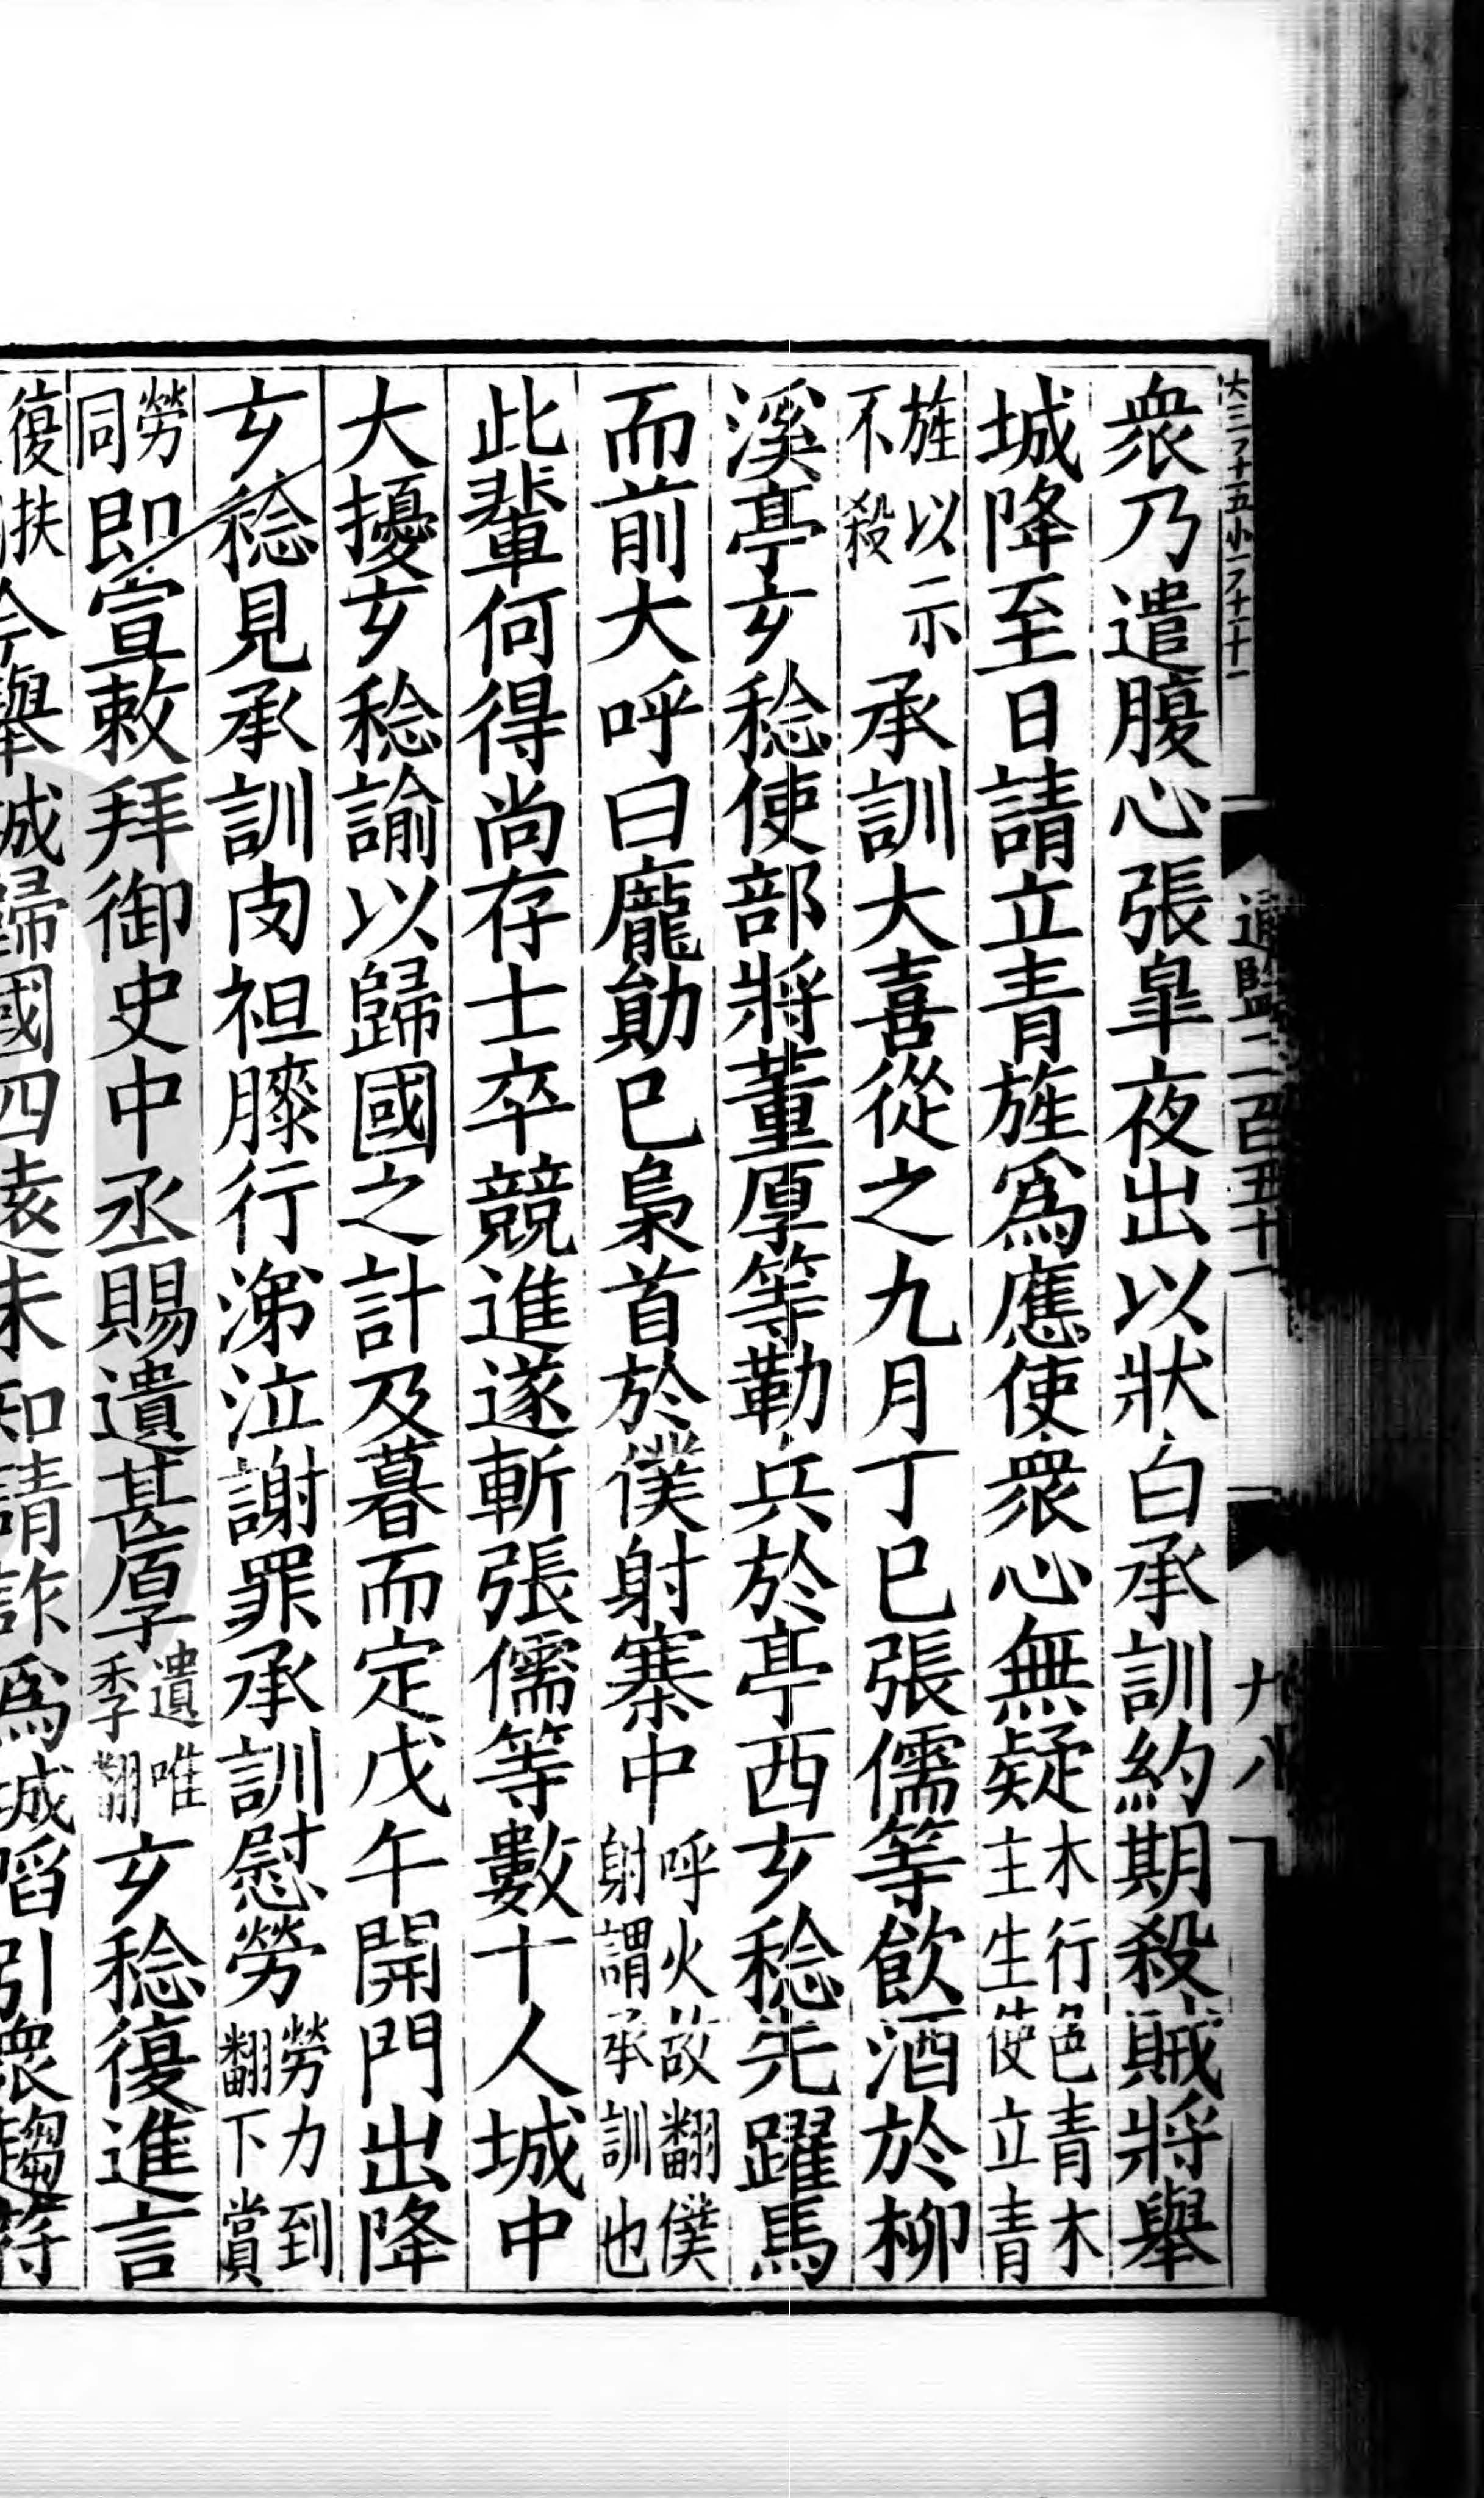 衆乃遣腹心張臯夜出以狀白承訓約期殺賊將舉
城降至日請立青旌爲應使衆心無疑木行色青木主生使立青
旌以示不殺承訓大喜從之九月丁巳張儒等飲酒於柳
溪亭玄稔使部將董厚等勒兵於亭西玄稔先躍馬
而前大呼曰龐勛已梟首於僕射寨中呼火故翻僕射謂承訓也
此輩何得尚存士卒競進遂斬張儒等數十人城中
大擾玄稔諭以歸國之計及暮而定戊午開門出降
玄稔見承訓肉袒膝行涕泣謝罪承訓慰勞勞力到翻下賞
勞同即宣敕拜御史中丞賜遺甚厚遺唯季翻玄稔復進言
今舉城歸國四遠未知請詐爲城陷引衆趨符
通鑑二百五十一
十八